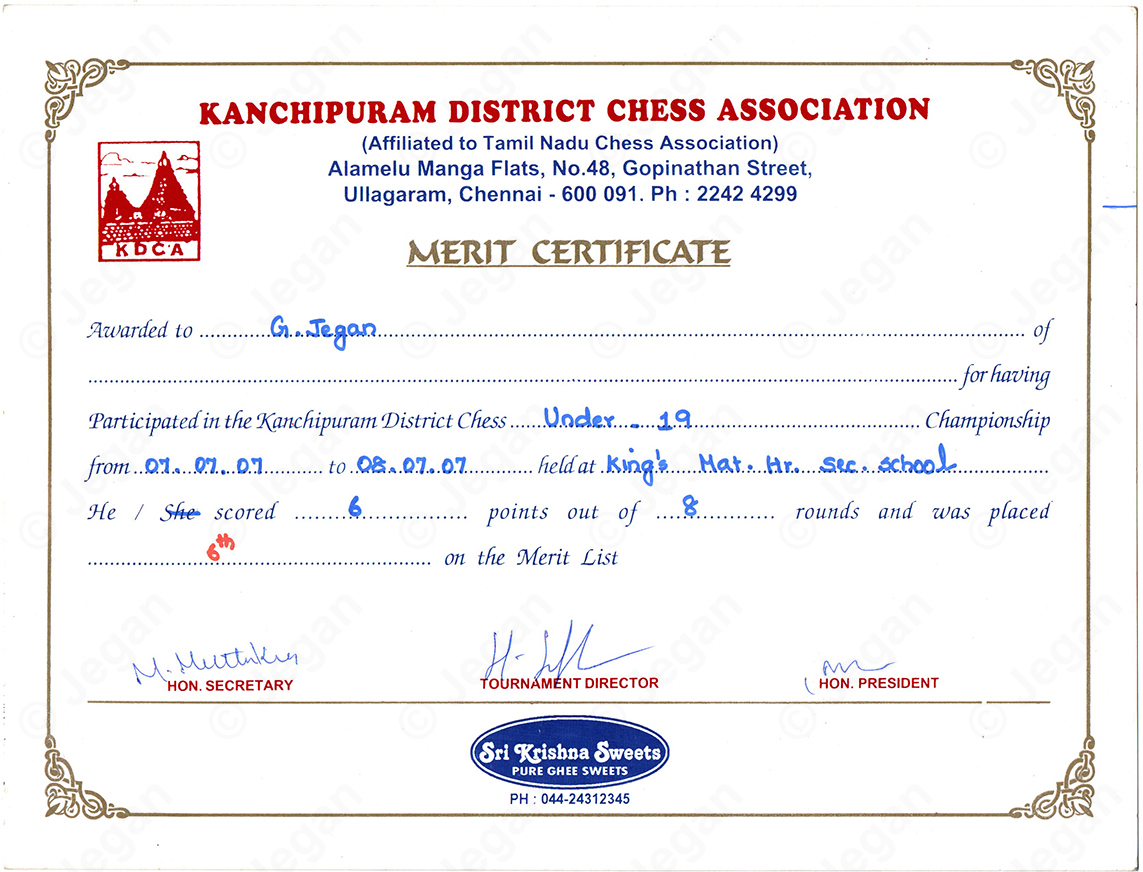 KANCHIPURAM DISTRICT CHESS ASSOCIATION
(Affiliated to Tamil Nadu Chess Association)
Alamelu Manga Flats, No.48, Gopinathan Street,
Ullagaram, Chennai - 600 091. Ph : 2242 4299
KDCA
MERIT CERTIFICATE
Awarded to G. Jegan of
for having
Participated in the Kanchipuram District Chess Under - 19 Championship
from 07. 07. 07 to 08.07.07 held at King's Mat. Hr. Sec. School
He / She scored 6 points out of 8 rounds and was placed
6th on the Merit List
HON. SECRETARY TOURNAMENT DIRECTOR HON. PRESIDENT
Sri Krishna Sweets
PURE GHEE SWEETS
PH : 044-24312345
© Jegan